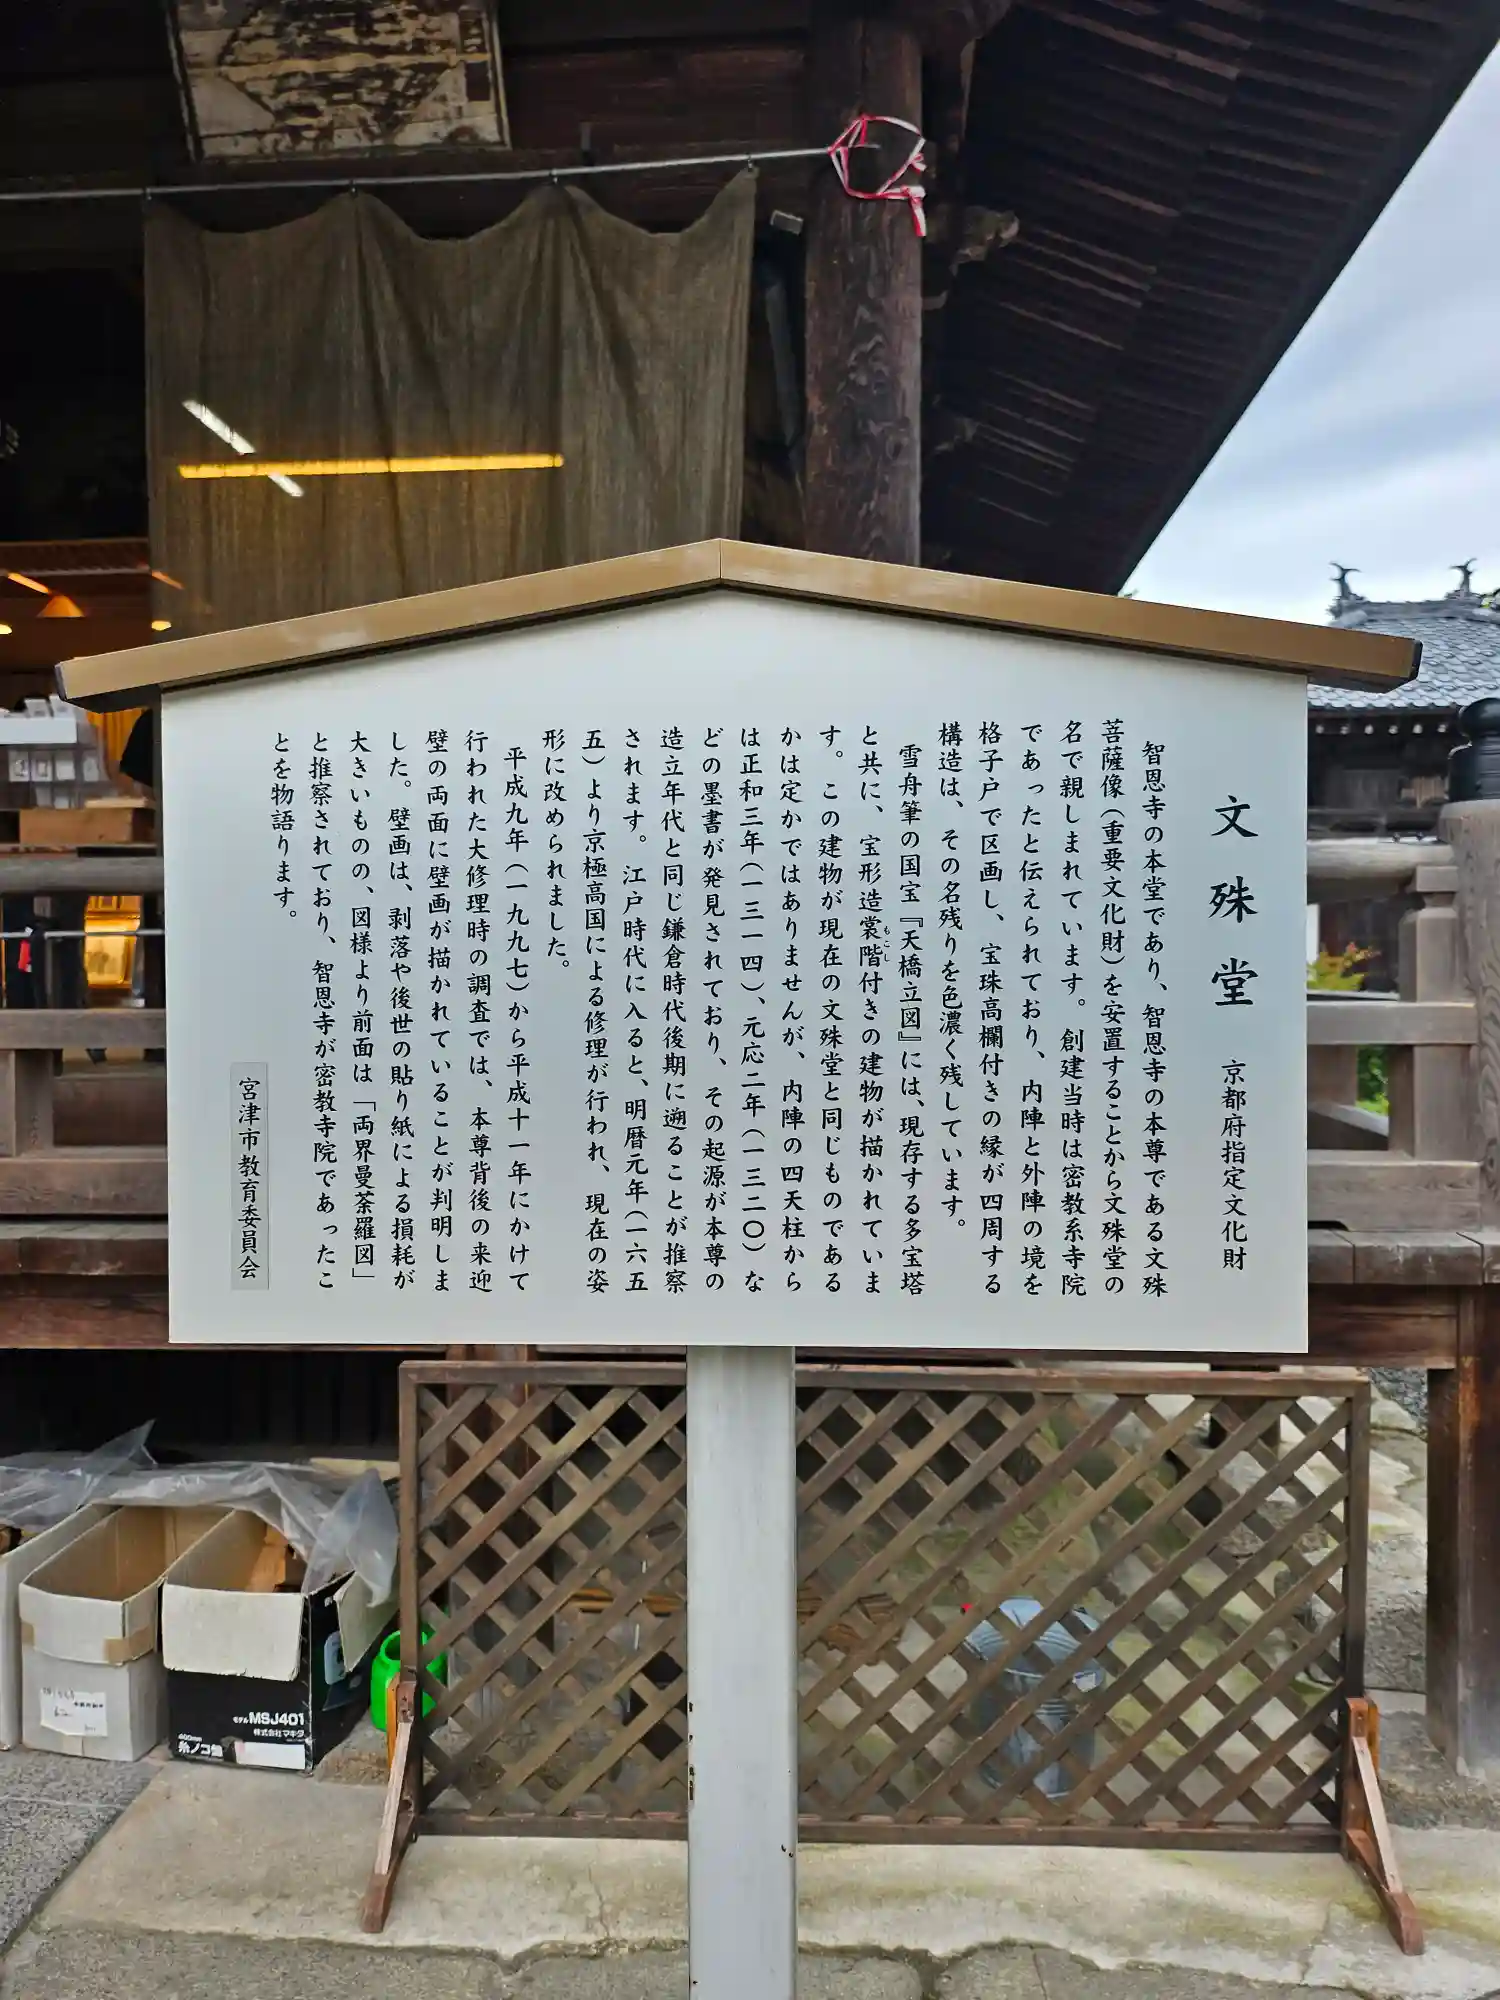 文殊堂 京都府指定文化財
智恩寺の本堂であり、智恩寺の本尊である文殊
菩薩像（重要文化財）を安置することから文殊堂の
名で親しまれています。創建当時は密教系寺院
であったと伝えられており、内陣と外陣の境を
格子戸で区画し、宝珠高欄付きの縁が四周する
構造は、その名残りを色濃く残しています。
雪舟筆の国宝『天橋立図』には、現存する多宝塔
と共に、宝形造裳階付きの建物が描かれていま
もこし
す。この建物が現在の文殊堂と同じものである
かは定かではありませんが、内陣の四天柱から
は正和三年（一三一四）、元応二年（一三二〇）な
どの墨書が発見されており、その起源が本尊の
造立年代と同じ鎌倉時代後期に遡ることが推察
されます。江戸時代に入ると、明暦元年（一六五
五）より京極高国による修理が行われ、現在の姿
形に改められました。
平成九年（一九九七）から平成十一年にかけて
行われた大修理時の調査では、本尊背後の来迎
壁の両面に壁画が描かれていることが判明しま
した。壁画は、剥落や後世の貼り紙による損耗が
大きいものの、図様より前面は「両界曼荼羅図」
と推察されており、智恩寺が密教寺院であったこ
とを物語ります。
宮津市教育委員会
モデル MSJ401
株式会社マキタ
400mm
糸ノコ盤